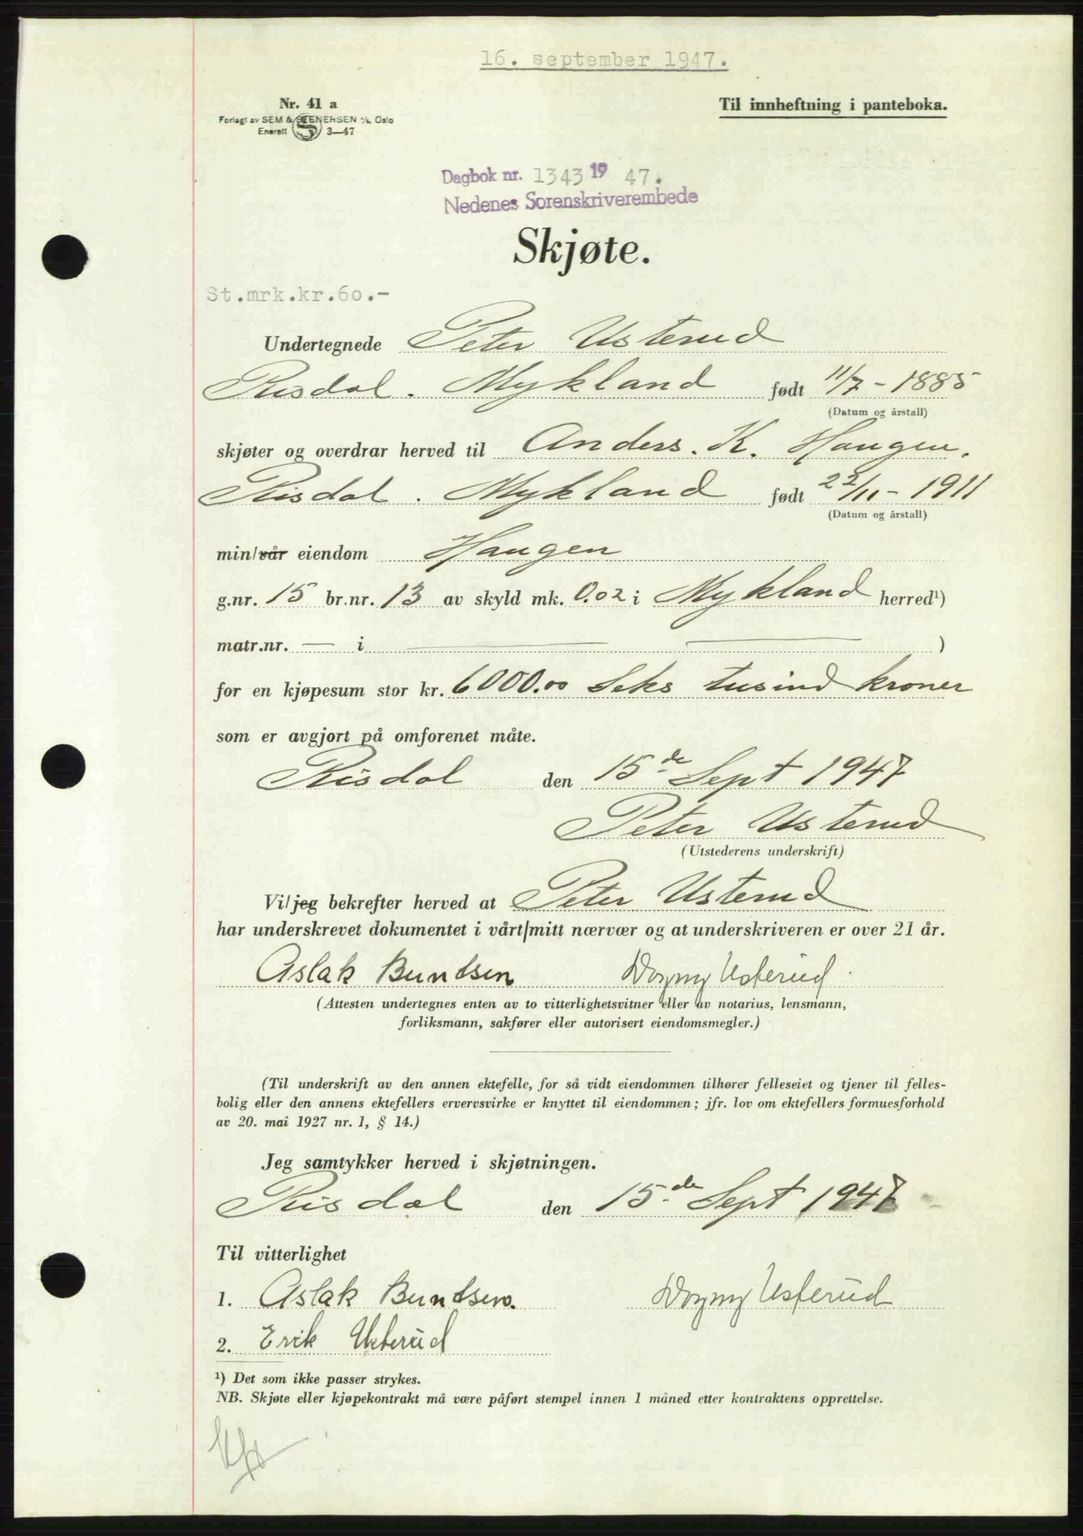 16. september 1947.
Nr. 41 a
Til innheftning i panteboka.
Forlagt av SEM & STENERSEN A/s, Oslo
Enerett 3—47
Dagbok nr. 1343 19 47.
Nedenes Sorenskriverembede
Skjøte.
St.mrk.kr.60.-
Undertegnede Peter Usterud
Risdal. Mykland født 11/7-1885
(Datum og årstall)
skjøter og overdrar herved til Anders. K. Haugen.
Risdal. Mykland født 22/11-1911
(Datum og årstall)
min/vår eiendom Haugen
g.nr. 15 br.nr. 13 av skyld mk. 0.02 i Mykland herred¹)
matr.nr. — i — — )
for en kjøpesum stor kr. 6000.00 Seks tusind kroner
som er avgjort på omforenet måte.
Risdal den 15de Sept 1947
Peter Usterud
(Utstederens underskrift)
Vi/jeg bekrefter herved at Peter Usterud
har underskrevet dokumentet i vårt/mitt nærvær og at underskriveren er over 21 år.
Aslak Bundsen Dagny Usterud
(Attesten undertegnes enten av to vitterlighetsvitner eller av notarius, lensmann,
forliksmann, sakfører eller autorisert eiendomsmegler.)
(Til underskrift av den annen ektefelle, for så vidt eiendommen tilhører felleseiet og tjener til felles-
bolig eller den annens ektefellers ervervsvirke er knyttet til eiendommen; jfr. lov om ektefellers formuesforhold
av 20. mai 1927 nr. 1, § 14.)
Jeg samtykker herved i skjøtningen.
Risdal den 15de Sept 1947
Til vitterlighet
1. Aslak Bundsen. Dagny Usterud
2. Erik Usterud
¹) Det som ikke passer strykes.
NB. Skjøte eller kjøpekontrakt må være påført stempel innen 1 måned etter kontraktens opprettelse.